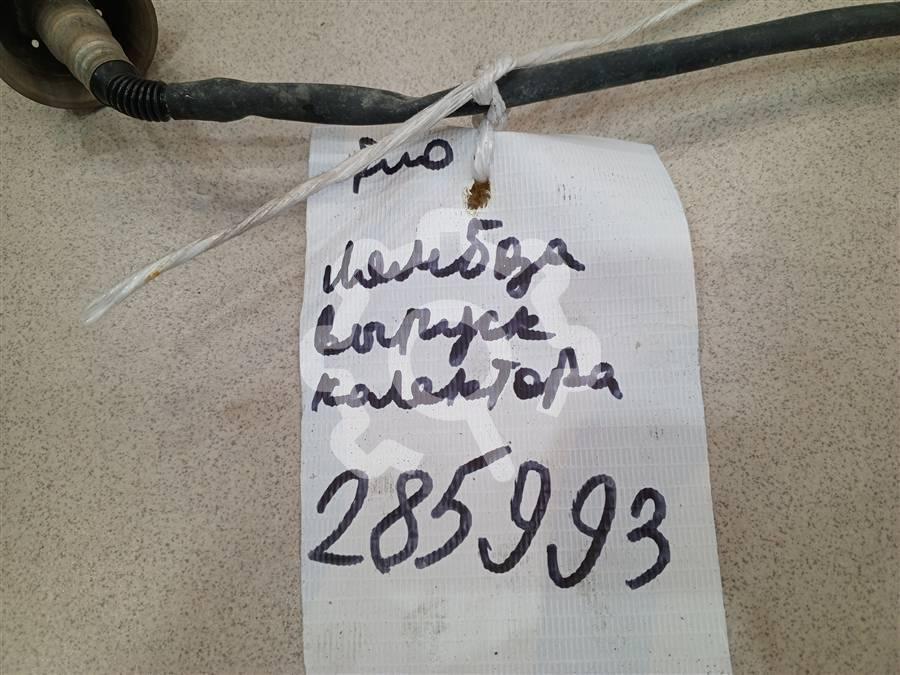 Рио
лямбда
выпуск
калектора
285993